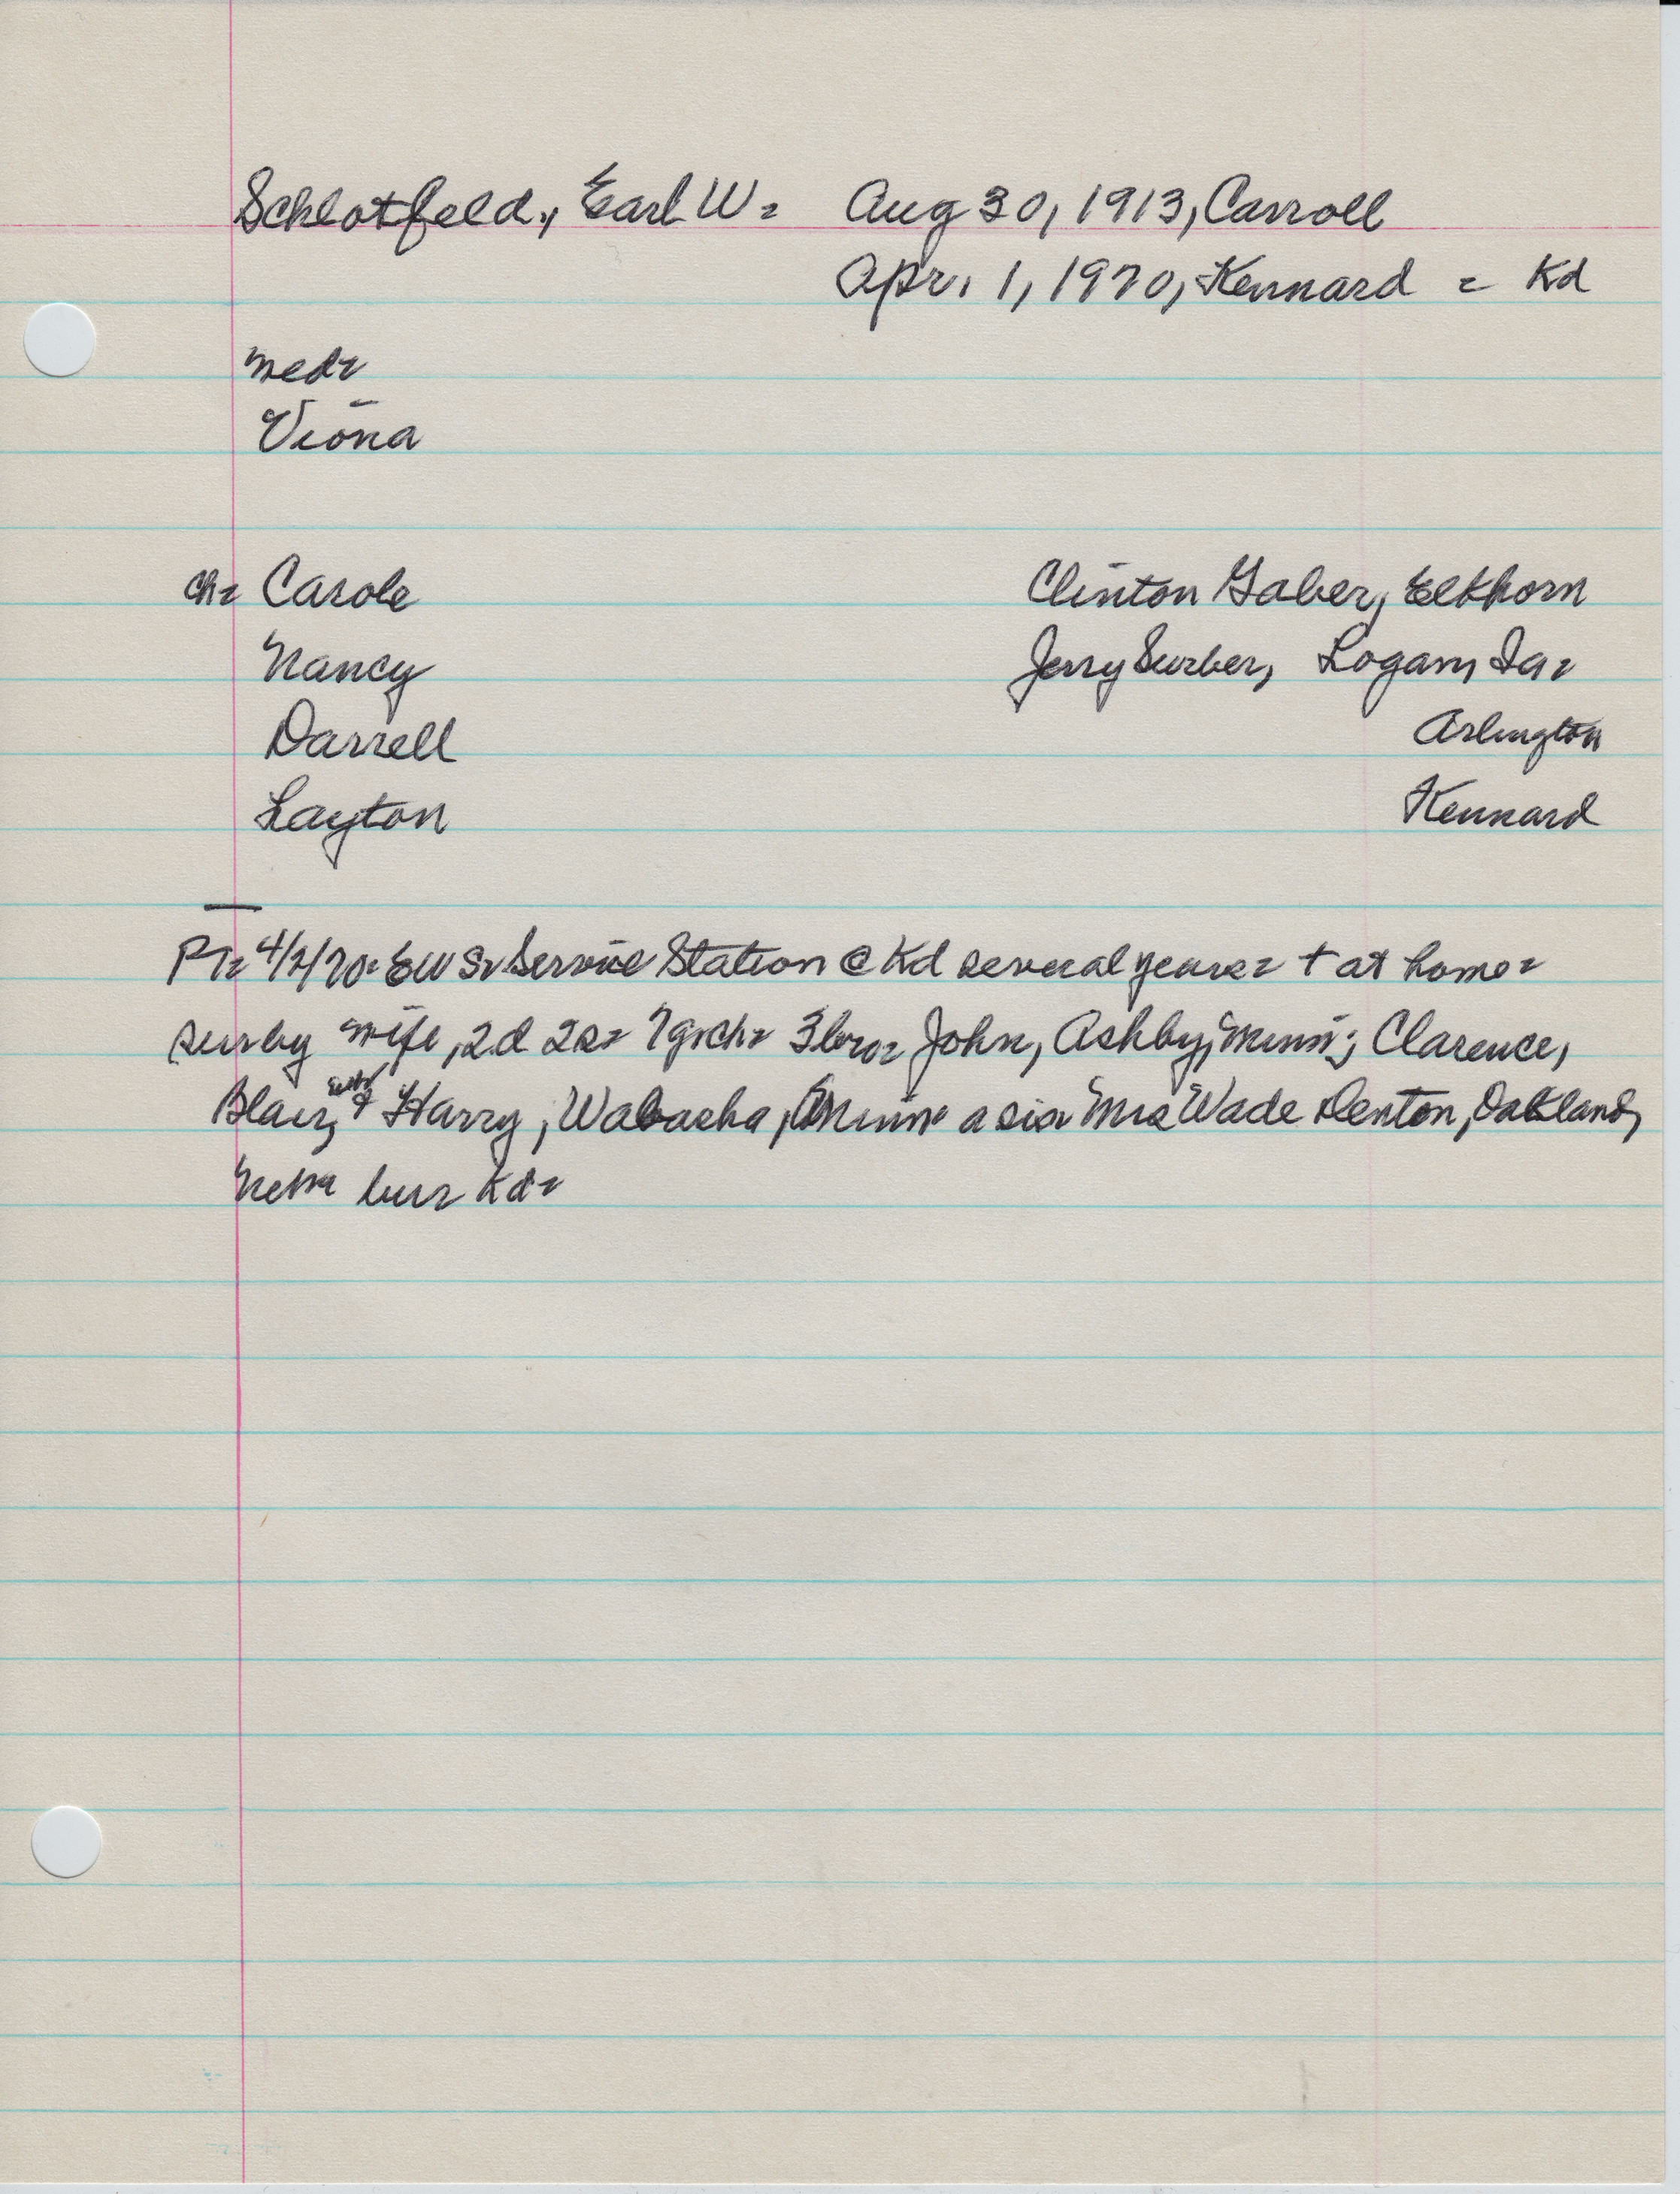 Schlotfeld, Earl W. Aug 30, 1913, Carroll
Apr. 1, 1970, Kennard = Kd
Med.
Viona
ch. Carole Clinton Gaber, Elkhorn
Nancy Jerry Surber, Logan, Ia.
Darrell Arlington
Layton Kennard
PT. 4/2/70. EWS. Service Station @ Kd several years. † at home.
sur by wife, 2d 2s. 7grch. 3bro. John, Ashby, Minn.; Clarence,
Blair, & Harry, Wabasha, Minn. a sis. Mrs Wade Denton, Oakland,
Nebr. bur. Kd.